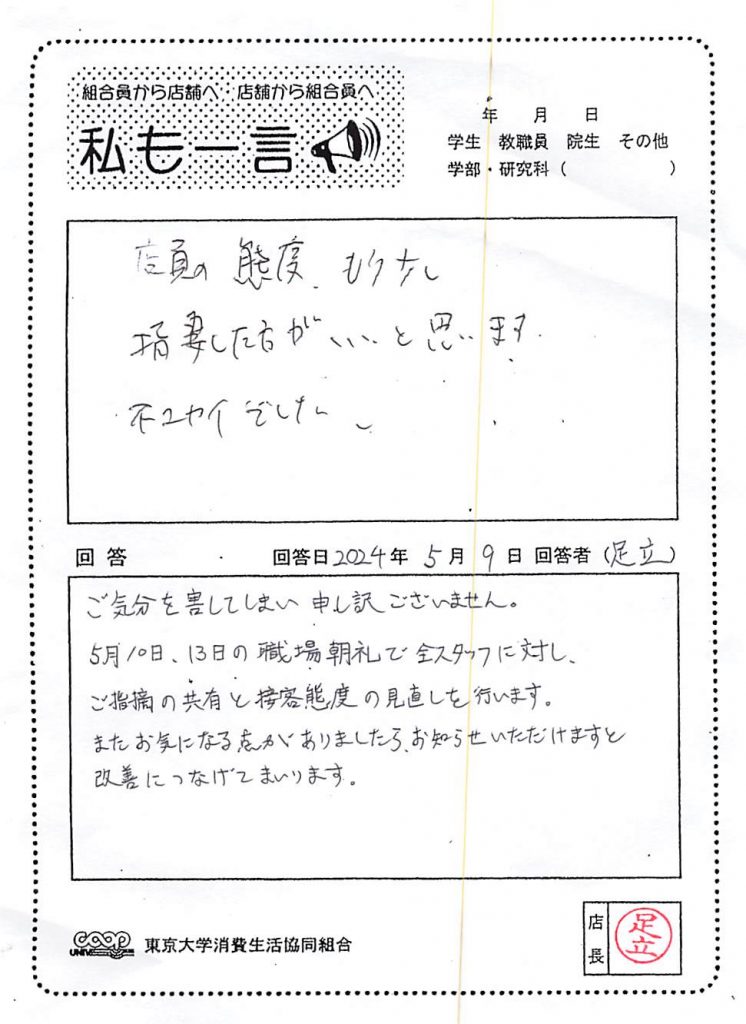 組合員から店舗へ 店舗から組合員へ
私も一言
年 月 日
学生 教職員 院生 その他
学部・研究科 ( )
店員の態度、もう少し
指導した方がいいと思います。
不ユカイでした。
回答 回答日 2024年 5月 9日 回答者 (足立)
ご気分を害してしまい申し訳ございません。
5月10日、13日の職場朝礼で全スタッフに対し、
ご指摘の共有と接客態度の見直しを行います。
またお気になる点がありましたら、お知らせいただけますと
改善につなげてまいります。
coop
UNIV.
東京大学消費生活協同組合
店長
足立